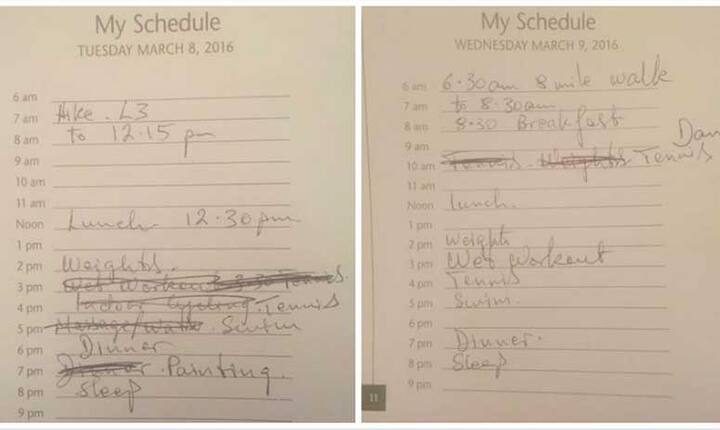 My Schedule
TUESDAY MARCH 8, 2016
6 am
7 am Hike. L3
8 am to 12.15 pm
9 am
10 am
11 am
Noon Lunch 12.30pm
1 pm
2 pm Weights.
3 pm Wet Workout 3.30 Tennis.
4 pm Indoor Cycling. Tennis
5 pm Massage/Walk. Swim
6 pm Dinner
7 pm Dinner. Painting.
8 pm Sleep
9 pm
My Schedule
WEDNESDAY MARCH 9, 2016
6 am 6.30am 8 mile walk
7 am to 8.30am
8 am 8.30 Breakfast
9 am Dan
10 am Tennis. Weights. Tennis
11 am
Noon Lunch.
1 pm
2 pm Weights
3 pm Wet Workout
4 pm Tennis
5 pm Swim.
6 pm
7 pm Dinner.
8 pm Sleep
9 pm
11